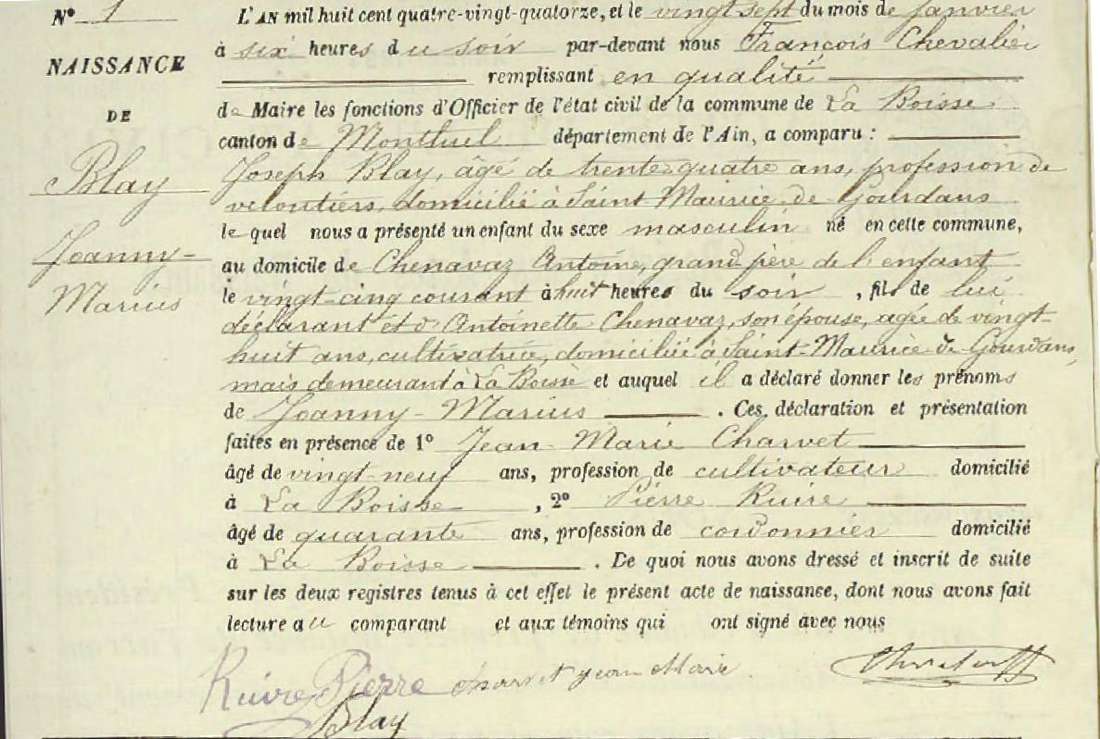 N° 1
NAISSANCE
DE
Blay
Joanny-
Marius
L'AN mil huit cent quatre-vingt-quatorze, et le vingt sept du mois de Janvier
à six heures du soir par-devant nous François Chevalier
remplissant en qualité
de Maire les fonctions d'Officier de l'état civil de la commune de La Boisse
canton de Montluel département de l'Ain, a comparu :
Joseph Blay, âgé de trente-quatre ans, profession de
veloutiers, domicilié à Saint-Maurice de Gourdans
lequel nous a présenté un enfant du sexe masculin né en cette commune,
au domicile de Chenavaz Antoine, grand-père de l'enfant
le vingt-cinq courant à huit heures du soir, fils de lui
déclarant et d'Antoinette Chenavaz, son épouse, agée de vingt-
huit ans, cultivatrice, domiciliée à Saint-Maurice de Gourdans,
mais demeurant à La Boisse et auquel il a déclaré donner les prénoms
de Joanny-Marius. Ces déclaration et présentation
faites en présence de 1° Jean-Marie Charvet
âgé de vingt-neuf ans, profession de cultivateur domicilié
à La Boisse, 2° Pierre Ruire
âgé de quarante ans, profession de cordonnier domicilié
à La Boisse. De quoi nous avons dressé et inscrit de suite
sur les deux registres tenus à cet effet le présent acte de naissance, dont nous avons fait
lecture au comparant et aux témoins qui ont signé avec nous
Ruire Pierre Charvet jean Marie
Blay